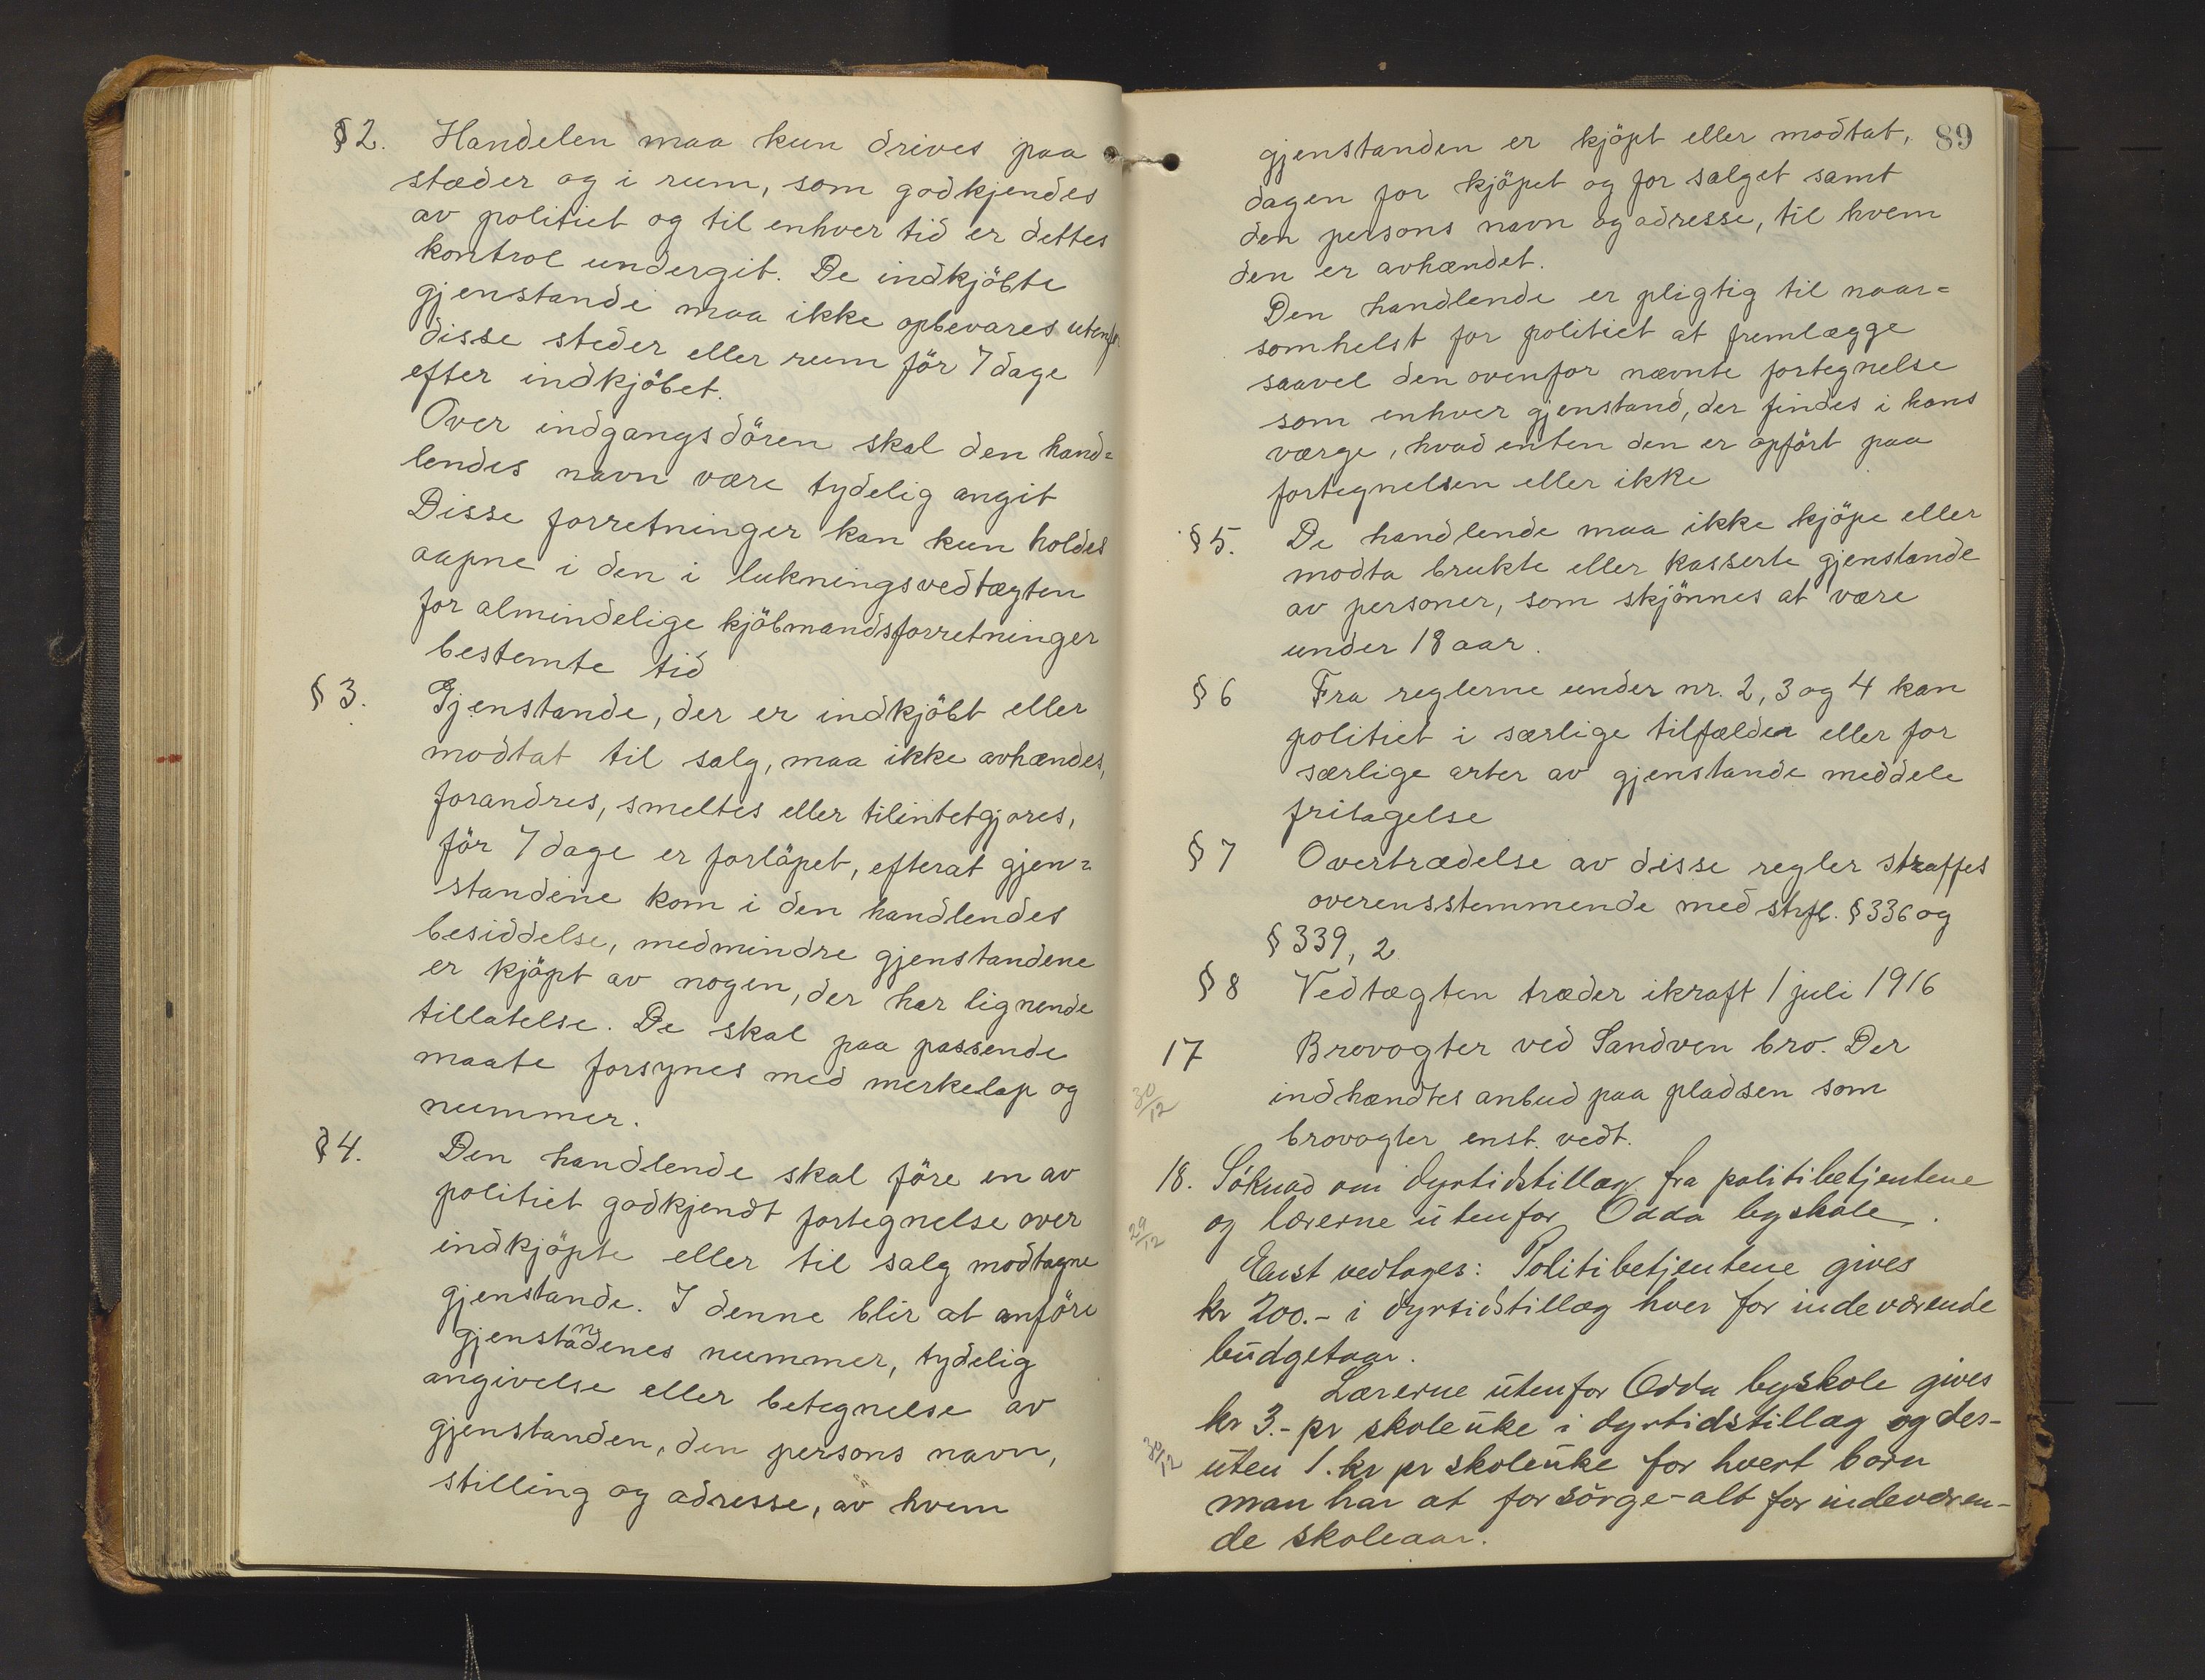 §2. Handelen maa kun drives paa
stæder og i rum, som godkjendes
av politiet og til enhver tid er dettes
kontrol undergit. De indkjöbte
gjenstande maa ikke opbevares utenfor
disse steder eller rum för 7 dage
efter indkjöbet.
Over indgangsdören skal den hand=
lendes navn være tydelig angit
Disse forretninger kan kun holdes
aapne i den i lukningsvedtægten
for almindelige kjöbmandsforretninger
bestemte tid
§3. Gjenstande, der er indkjöbt eller
modtat til salg, maa ikke avhændes,
forandres, smeltes eller tilintetgjores,
för 7 dage er forlöpet, efterat gjen=
standene kom i den handlendes
besiddelse, medmindre gjenstandene
er kjöpt av nogen, der har lignende
tillatelse. De skal paa passende
maate forsynes med merkelap og
nummer.
§4. Den handlende skal före en av
politiet godkjendt fortegnelse over
indkjöpte eller til salg modtagne
gjenstande. I denne blir at anföre
gjenstandenes nummer, tydelig
angivelse eller betegnelse av
gjenstanden, den persons navn,
stilling og adresse, av hvem
89
gjenstanden er kjöpt eller modtat,
dagen for kjöpet og for salget samt
den persons navn og adresse, til hvem
den er avhændet.
Den handlende er pligtig til naar=
somhelst for politiet at fremlægge
saavel den ovenfor nævnte fortegnelse
som enhver gjenstand, der findes i hans
værge, hvad enten den er opfört paa
fortegnelsen eller ikke
§5. De handlende maa ikke kjöpe eller
modta brukte eller kasserte gjenstande
av personer, som skjönnes at være
under 18 aar.
§6 Fra reglerne under nr. 2, 3 og 4 kan
politiet i særlige tilfælder eller for
særlige arter av gjenstande meddele
fritagelse
§7 Overtrædelse av disse regler straffes
overensstemmende med strfl. §336 og
§339, 2
§8 Vedtægten træder ikraft 1 juli 1916
17 Brovogter ved Sandven bro. Der
30/12 indhændtes anbud paa pladsen som
brovogter enst. vedt.
18. Söknad om dyrtidstillæg fra politibetjentene
29/12 og lærerne utenfor Odda byskole.
Enst vedtages: Politibetjentene gives
kr 200.- i dyrtidstillæg hver for indeværende
budgetaar.
Lærerne utenfor Odda byskole gives
kr 3.- pr skoleuke i dyrtidstillæg og der-
30/12 uten 1. kr pr skoleuke for hvert barn
man har at forsörge - alt for indeværen-
de skoleaar.